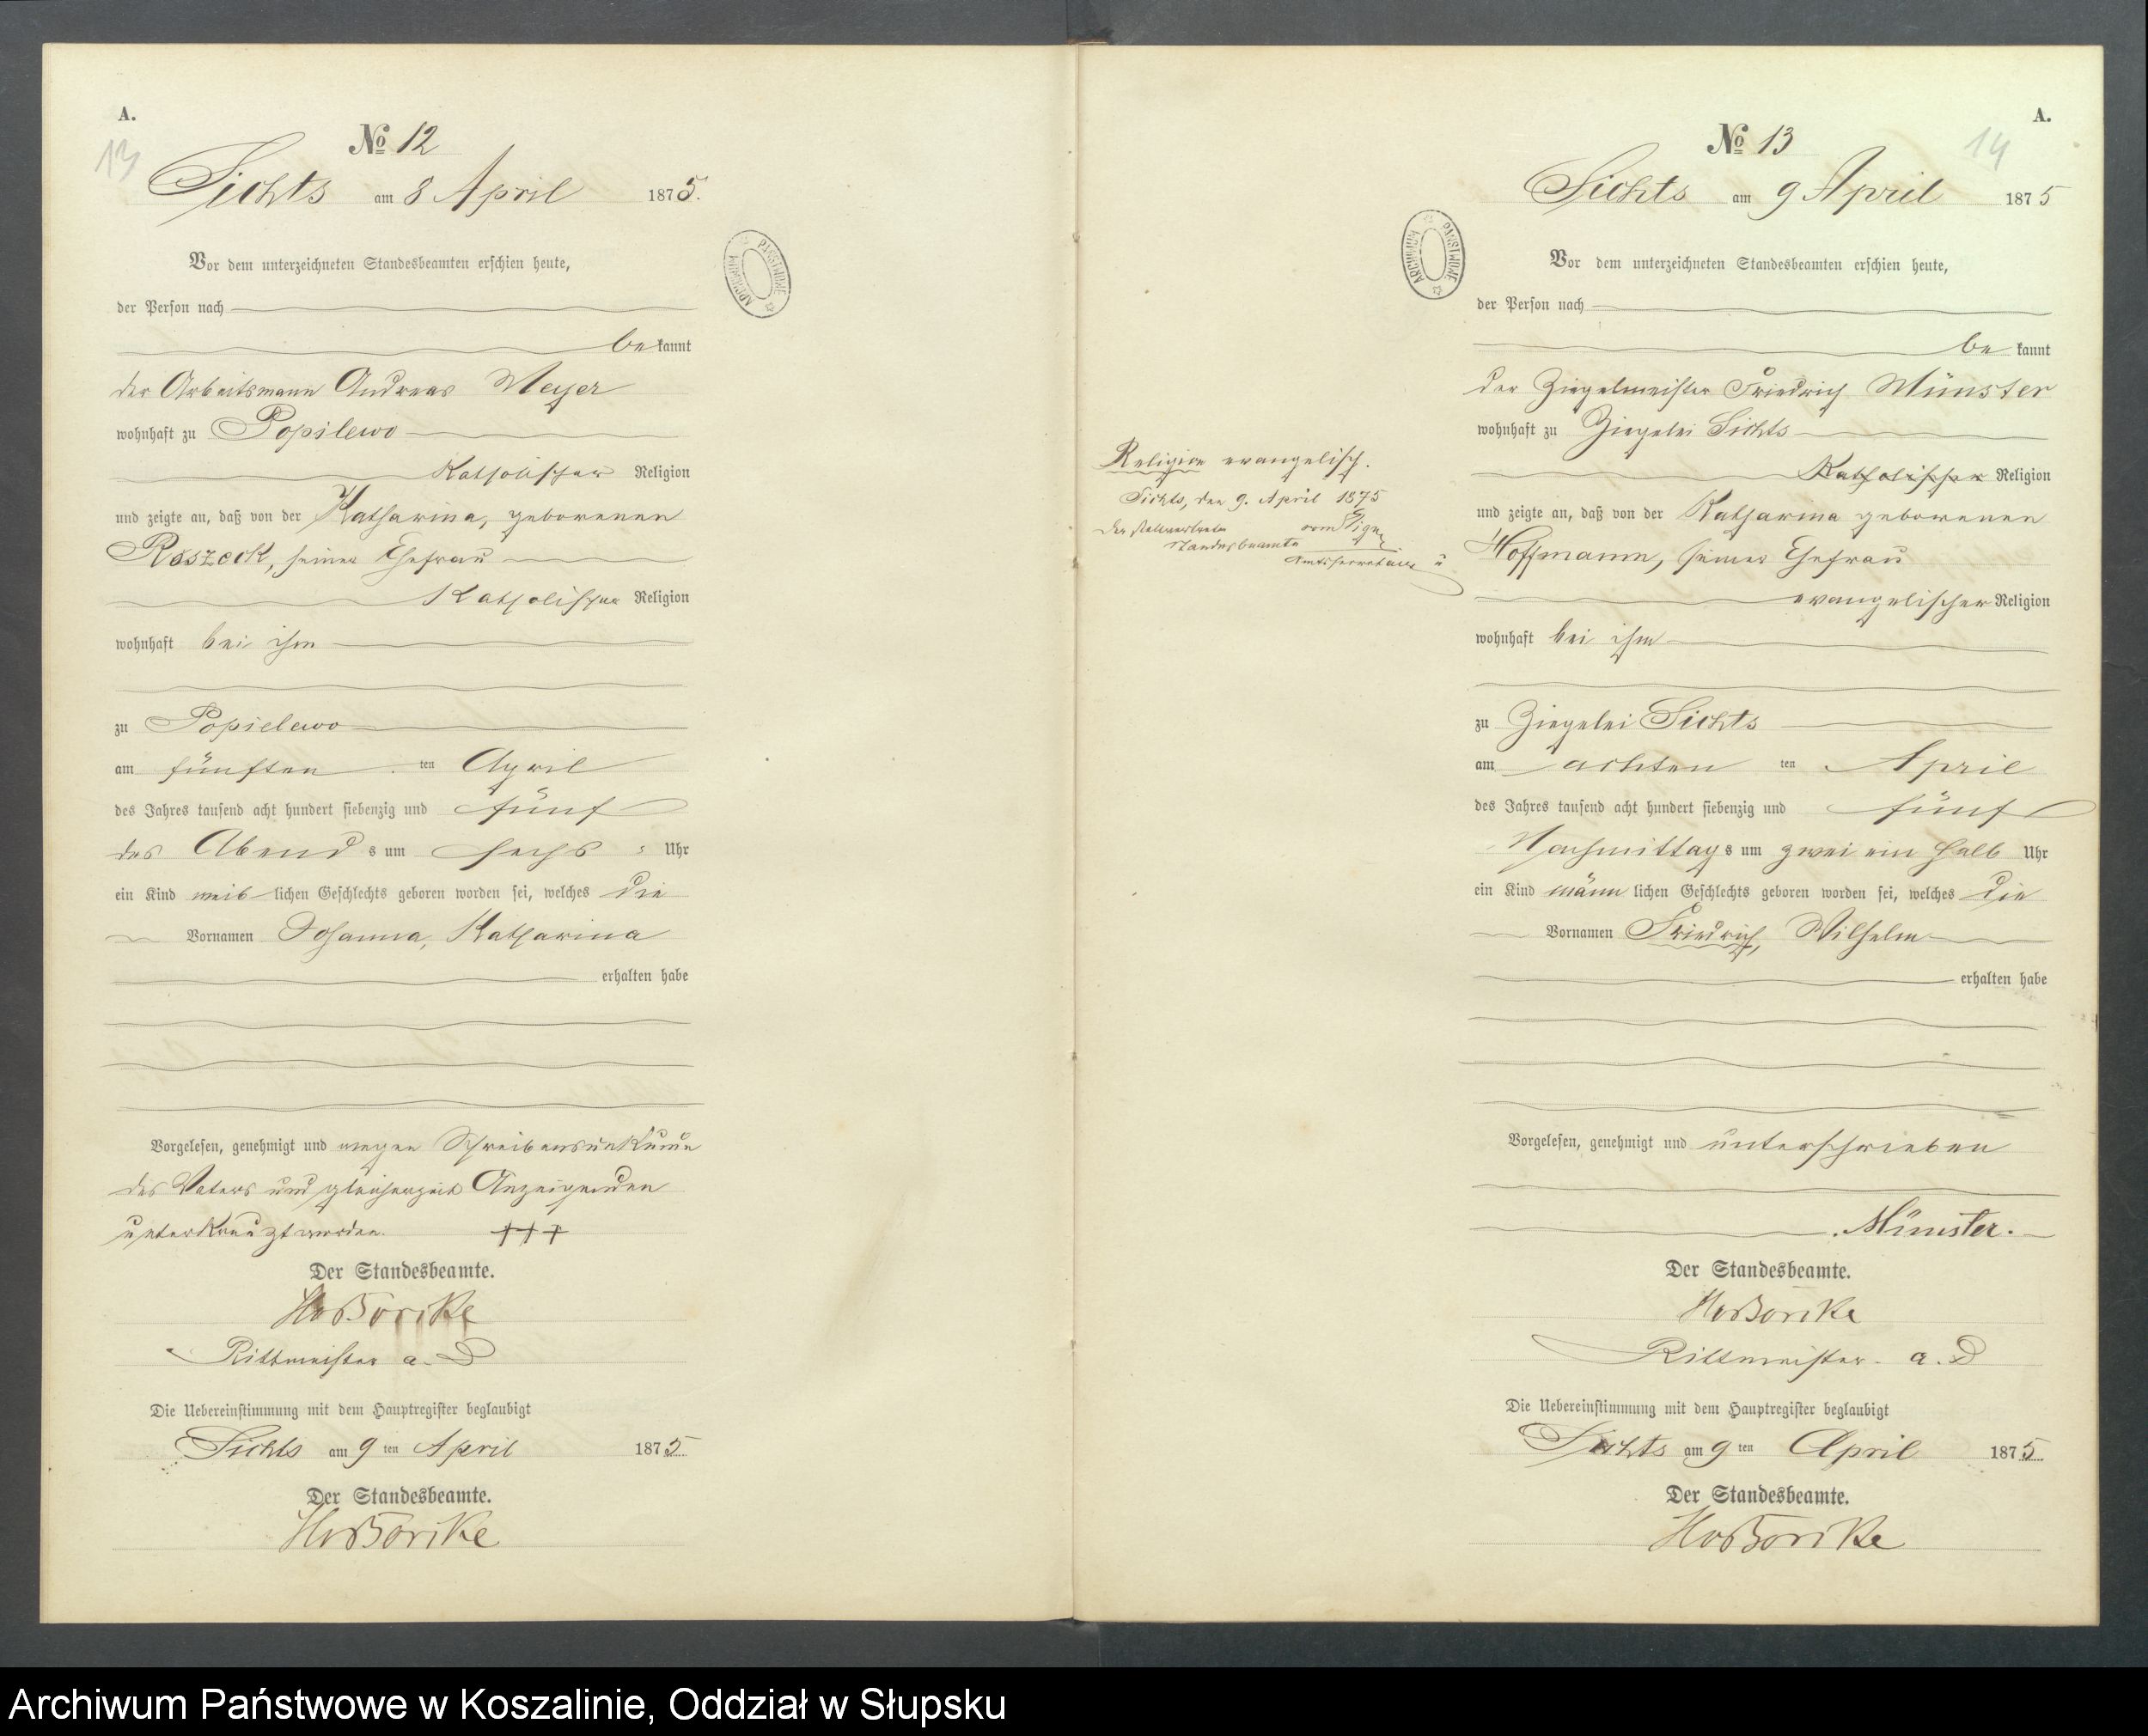 A.
13
No 12
Sichts am 8 April 1875.
Vor dem unterzeichneten Standesbeamten erschien heute,
der Person nach
bekannt
der Arbeitsmann Andreas Meyer
wohnhaft zu Popilewo
Katholischer Religion
und zeigte an, daß von der Katharina, geborenen
Roszeck, seiner Ehefrau
Katholischer Religion
wohnhaft bei ihm
zu Popielewo
am fünften ten April
des Jahres tausend acht hundert siebenzig und fünf
des Abend s um sechs Uhr
ein Kind weiblichen Geschlechts geboren worden sei, welches die
Vornamen Johanna, Katharina
erhalten habe
Vorgelesen, genehmigt und wegen Schreibensunkunde
des Vaters und gleichzeit Anzeigenden
unterkreuzt worden. +++
Der Standesbeamte.
Rittmeister a. D
Die Uebereinstimmung mit dem Hauptregister beglaubigt
Sichts am 9 ten April 1875.
Der Standesbeamte.
ARCHIWUM PAŃSTWOWE
A.
14
No 13
Sichts am 9 April 1875
ARCHIWUM PAŃSTWOWE
Vor dem unterzeichneten Standesbeamten erschien heute,
der Person nach
bekannt
der Ziegelmeister Friedrich Münster
wohnhaft zu Ziegelei Sichts
Katholischer Religion
und zeigte an, daß von der Katharina geborenen
Hoffmann, seiner Ehefrau
evangelischer Religion
wohnhaft bei ihm
zu Ziegelei Sichts
am achten ten April
des Jahres tausend acht hundert siebenzig und fünf
Nachmittags um zwei ein halb Uhr
ein Kind männlichen Geschlechts geboren worden sei, welches die
Vornamen Friedrich, Wilhelm
erhalten habe
Vorgelesen, genehmigt und unterschrieben
Münster.
Der Standesbeamte.
Rittmeister a. D
Die Uebereinstimmung mit dem Hauptregister beglaubigt
Sichts am 9 ten April 1875.
Der Standesbeamte.
Religion evangelisch.
Sichts, den 9. April 1875
Der stellvertretende
Standesbeamte
Amtssecretair
Archiwum Państwowe w Koszalinie, Oddział w Słupsku